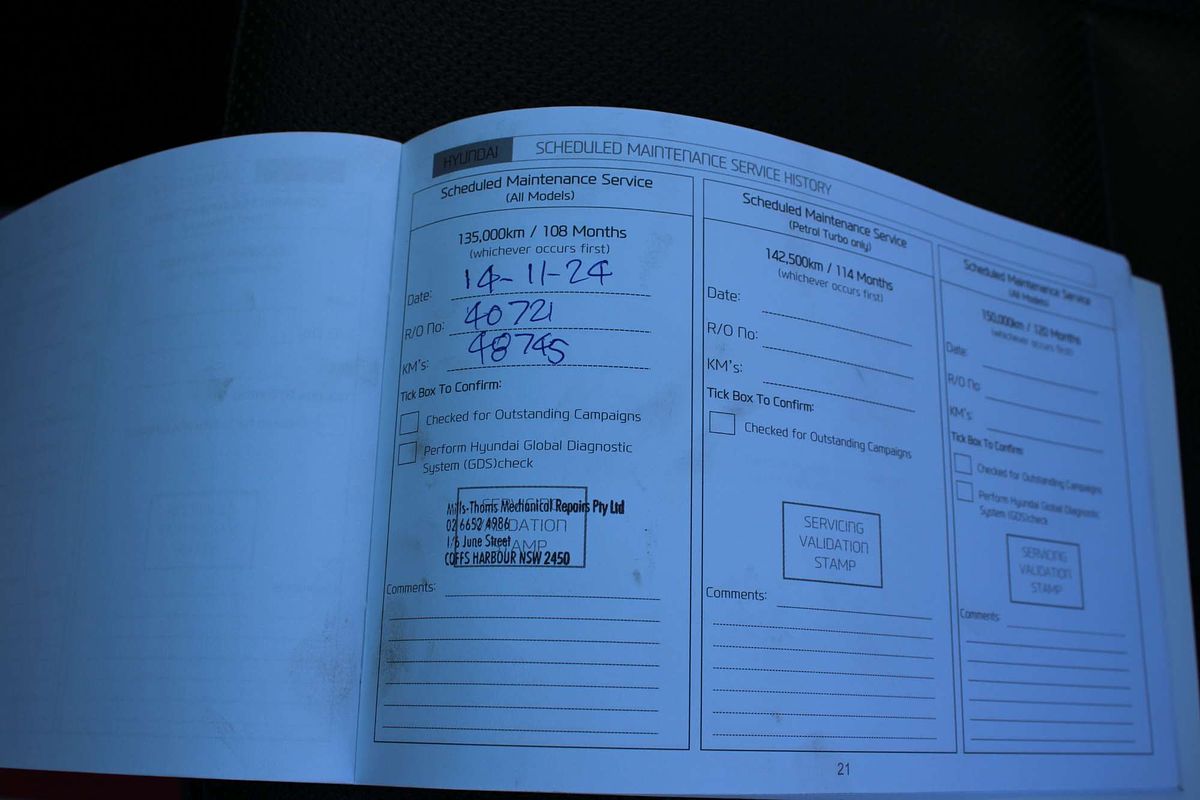 HYUNDAI SCHEDULED MAINTENANCE SERVICE HISTORY
Scheduled Maintenance Service
(All Models)
135,000km / 108 Months
(whichever occurs first)
Date: 14-11-24
R/O No: 40721
KM's: 48745
Tick Box To Confirm:
Checked for Outstanding Campaigns
Perform Hyundai Global Diagnostic
System (GDS)check
SERVICING
VALIDATION
STAMP
Mills-Thoms Mechanical Repairs Pty Ltd
02 6652 4986
1/6 June Street
COFFS HARBOUR NSW 2450
Comments:
Scheduled Maintenance Service
(Petrol Turbo only)
142,500km / 114 Months
(whichever occurs first)
Date:
R/O No:
KM's:
Tick Box To Confirm:
Checked for Outstanding Campaigns
SERVICING
VALIDATION
STAMP
Comments:
Scheduled Maintenance Service
(All Models)
150,000km / 120 Months
(whichever occurs first)
Date:
R/O No:
KM's:
Tick Box To Confirm:
Checked for Outstanding Campaigns
Perform Hyundai Global Diagnostic
System (GDS)check
SERVICING
VALIDATION
STAMP
Comments:
21